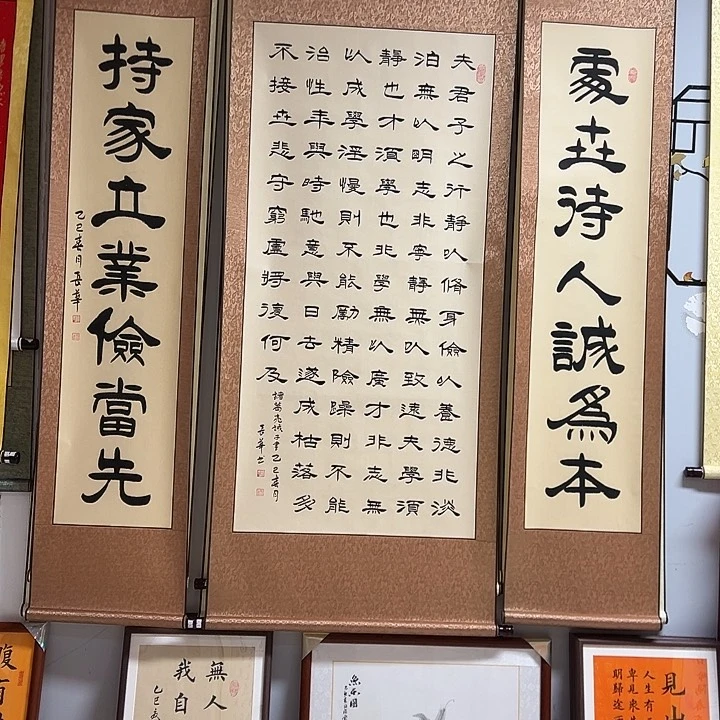 處世待人誠為本
夫君子之行靜以脩身儉以養德非淡
泊無以明志非寧靜無以致遠夫學須
靜也才須學也非學無以廣才非志無
以成學淫慢則不能勵精險躁則不能
治性年與時馳意與日去遂成枯落多
不接世悲守窮廬將復何及
諸葛亮誡子書乙巳春月
岳華書
持家立業儉當先
乙巳春月岳華
腹有
無人
我自
乙巳
見山
人生有